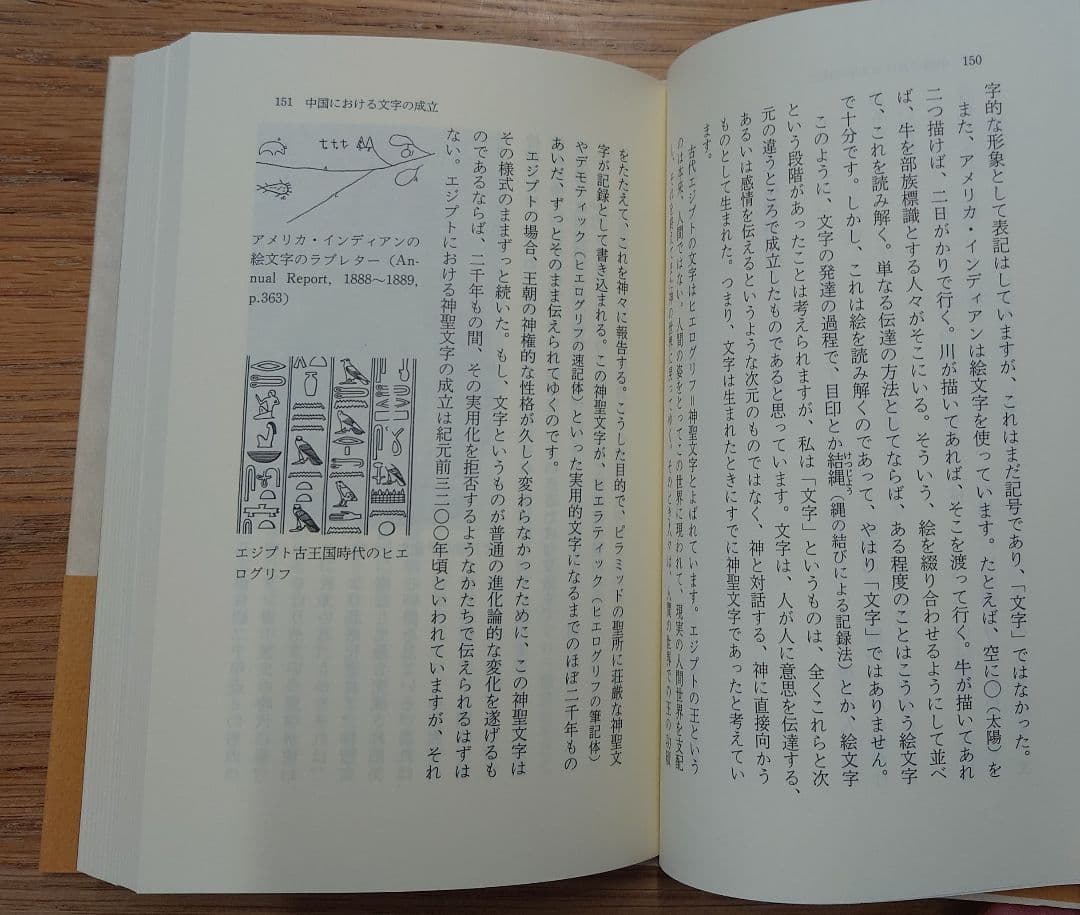 150
字的な形象として表記はしていますが、これはまだ記号であり、「文字」ではなかった。
また、アメリカ・インディアンは絵文字を使っています。たとえば、空に〇（太陽）を
二つ描けば、二日がかりで行く。川が描いてあれば、そこを渡って行く。牛が描いてあれ
ば、牛を部族標識とする人々がそこにいる。そういう、絵を綴り合わせるようにして並べ
て、これを読み解く。単なる伝達の方法としてならば、ある程度のことはこういう絵文字
で十分です。しかし、これは絵を読み解くのであって、やはり「文字」ではありません。
このように、文字の発達の過程で、目印とか結縄（縄の結びによる記録法）とか、絵文字
けつじょう
という段階があったことは考えられますが、私は「文字」というものは、全くこれらと次
元の違うところで成立したものであると思っています。文字は、人が人に意思を伝達する、
あるいは感情を伝えるというような次元のものではなく、神と対話する、神に直接向かう
ものとして生まれた。つまり、文字は生まれたときにすでに神聖文字であったと考えてい
ます。
古代エジプトの文字はヒエログリフ＝神聖文字とよばれています。エジプトの王という
のは本来、人間ではない。人間の姿をとってこの世界に現われて、現実の人間世界を支配
151 中国における文字の成立
をたたえて、これを神々に報告する。こうした目的で、ピラミッドの聖所に荘厳な神聖文
字が記録として書き込まれる。この神聖文字が、ヒエラティック（ヒエログリフの筆記体）
やデモティック（ヒエログリフの速記体）といった実用的文字になるまでのほぼ二千年もの
あいだ、ずっとそのまま伝えられてゆくのです。
エジプトの場合、王朝の神権的な性格が久しく変わらなかったために、この神聖文字は
その様式のままずっと続いた。もし、文字というものが普通の進化論的な変化を遂げるも
のであるならば、二千年もの間、その実用化を拒否するようなかたちで伝えられるはずは
ない。エジプトにおける神聖文字の成立は紀元前三二〇〇年頃といわれていますが、それ
アメリカ・インディアンの
絵文字のラブレター（An-
nual Report, 1888〜1889,
p.363）
エジプト古王国時代のヒエ
ログリフ